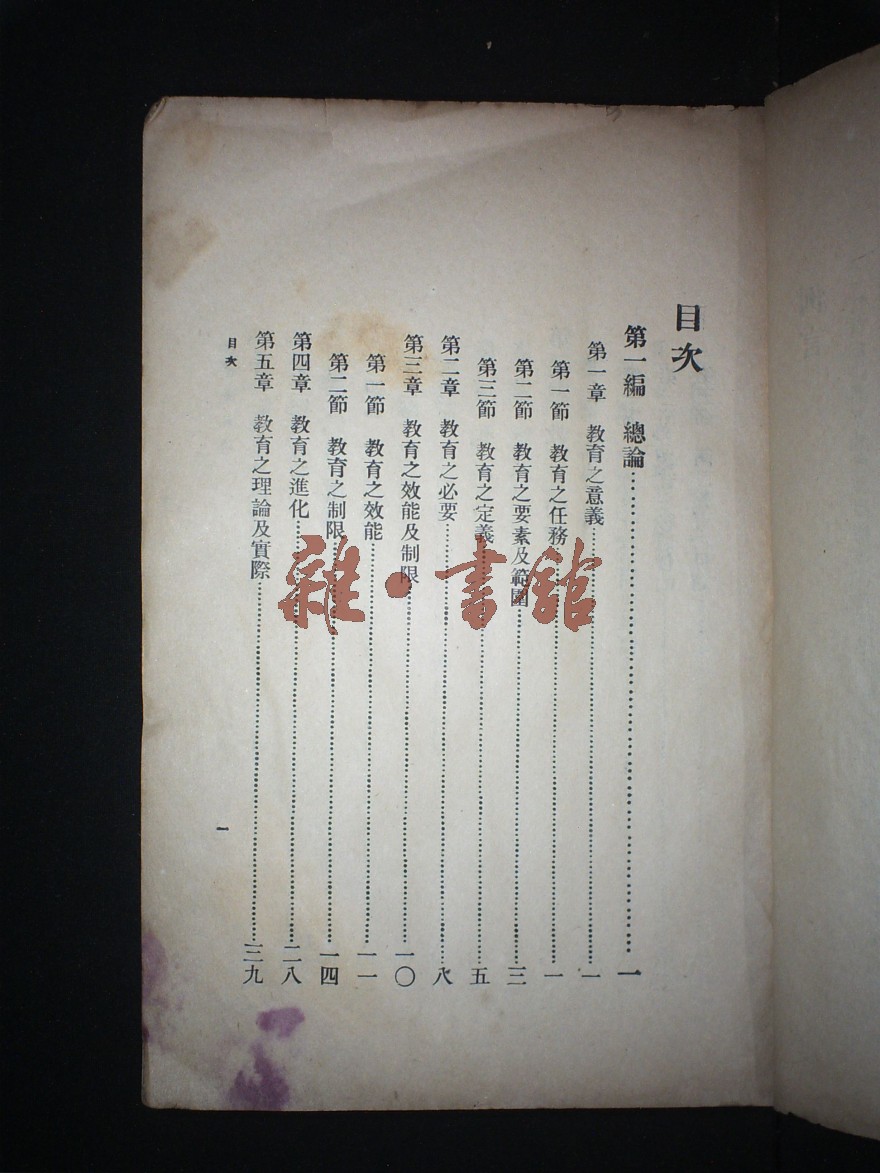 目次
第一編　總論…………一
第一章　教育之意義…………一
第一節　教育之任務…………一
第二節　教育之要素及範圍…………三
第三節　教育之定義…………五
第二章　教育之必要…………八
第三章　教育之效能及制限…………一〇
第一節　教育之效能…………一一
第二節　教育之制限…………一四
第四章　教育之進化…………二八
第五章　教育之理論及實際…………三九
目次
一
雜·書館